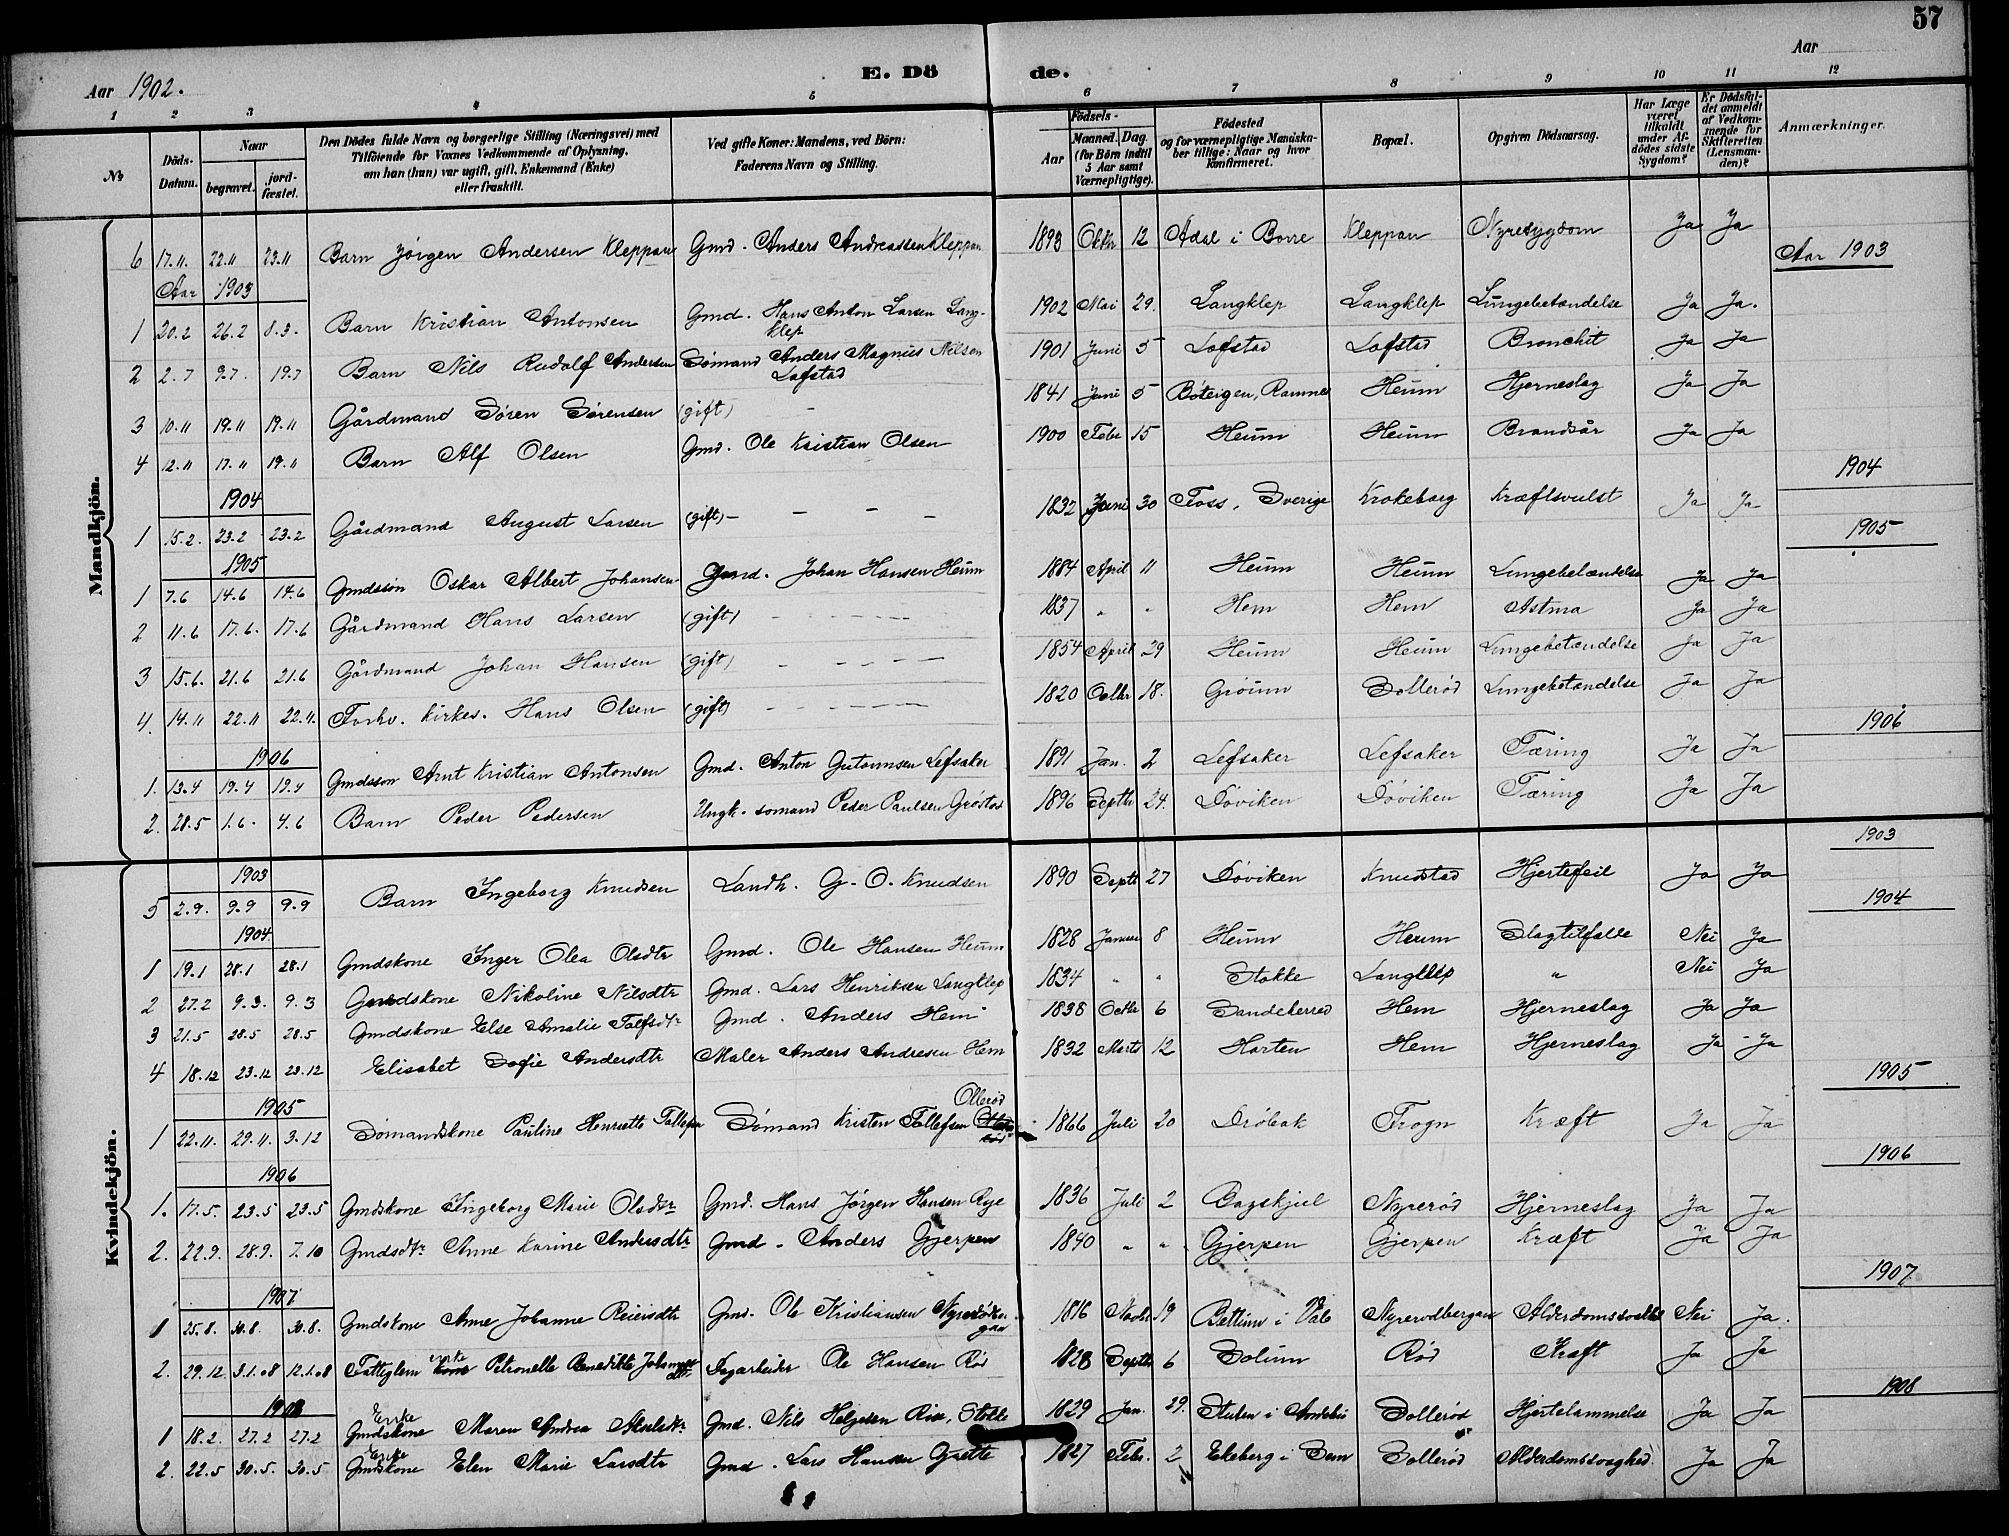 57
Aar 1902.
E. Dö de.
Aar
1 2 3 4 5 6 7 8 9 10 11 12
No
Döds-Datum.
Naar
begravet.
jord-fæstet.
Den Dödes fulde Navn og borgerlige Stilling (Næringsvei) med Tilföiende for Voxnes Vedkommende af Oplysning. om han (hun) var ugift, gift, Enkemand (Enke) eller fraskilt.
Ved gifte Koner: Mandens, ved Börn: Faderens Navn og Stilling.
Födsels-
Aar
Maaned. Dag. (for Börn indtil 5 Aar samt Værnepligtige).
Födested og for værnepligtige Mandskaber tillige: Naar og hvor konfirmeret.
Bopæl.
Opgiven Dödsaarsag.
Har Læge været tilkaldt under Afdödes sidste Sygdom?
Er Dödsfaldet anmeldt af Vedkommende for Skifteretten (Lensmanden)?
Anmærkninger.
Mandkjön.
6 17.11. 22.11 23.11 Barn Jörgen Andersen Kleppan Gmd. Anders Andreassen Kleppan 1893 Oktbr 12 Adal i Borre Kleppan Nyresygdom Ja Ja
Aar 1903 Aar 1903
1 20.2 26.2 8.3. Barn Kristian Antonsen Gmd. Hans Anton Larsen Langklep 1902 Mai 29. Langklep Langklep Lungebetændelse Ja Ja.
2 2.7 9.7. 19.7 Barn Nils Rudolf Andersen Sømand Anders Magnus Nilsen Lofstad 1901 Juni 5 Lofstad Lofstad Bronchit Ja Ja
3 10.11 19.11 19.11 Gårdmand Sören Sørensen (gift) - 1841 Juni 5 Böteigen, Ramnes Heum Hjerneslag Ja Ja
4 12.11 17.11 19.11 Barn Alf Olsen Gmd. Ole Kristian Olsen 1900 Febr 15 Heum Heum Brandsår Ja Ja
1904 1904
1 15.2. 23.2 23.2 Gårdmand August Larsen (gift) - - - - 1832 Juni 30 Foss, Sverige Krokeborg Kræftsvulst Ja Ja
1905 1905
1 7.6 14.6 14.6 Gmdssön Oskar Albert Johansen Gmd. Johan Hansen Heum 1884 April 11 Heum Heum Lungebetændelse Ja Ja
2 11.6 17.6. 17.6 Gårdmand Hans Larsen (gift) - - - - - 1837 " " Hem Hem Astma Ja Ja
3 15.6. 21.6 21.6 Gårdmand Johan Hansen (gift) - - - - - 1854 April 29 Heum Heum Lungebetændelse Ja Ja
4. 14.11 22.11 22.11. Forhv. Kirkes. Hans Olsen (gift) - - - - - 1820 Octbr 18. Gröum Sollerød Lungebetændelse Ja Ja
1906 1906
1. 13.4 19.4 19.4 Gmdssøn Arnt Kristian Antonsen Gmd. Anton Gutormsen Lefsaker 1891 Jan. 2 Lefsaker Lefsaker Tæring Ja Ja
2. 28.5 1.6. 4.6 Barn Peder Pedersen Ungk. sømand Peder Paulsen Grøstad 1896 Septbr 24. Döviken Döviken Tæring Ja Ja
Kvindekjön.
1903 1903
5 2.9. 9.9 9.9 Barn Ingeborg Knudsen Landh. G. O. Knudsen 1890 Septb 27 Döviken Knudstad Hjertefeil Ja Ja
1904 1904
1 19.1 28.1 28.1 Gmdskone Inger Olea Olsdtr Gmd. Ole Hansen Heum 1828 Januar 8 Heum Heum Slagtilfælde Nei Ja
2 27.2 9.3. 9.3 Gmdskone Nikoline Nilsdtr Gmd. Lars Henriksen Langklep 1834 " " Stokke Langklep " Nei Ja
3 21.5 28.5 28.5 Gmdskone Else Amalie Tolfsdtr Gmd. Anders Hem 1838 Octbr 6 Sandeherred Hem Hjerneslag Ja Ja
4 18.12 23.12 23.12 Elisabet Sofie Andersdtr Maler Anders Andresen Hem 1832 Marts 12 Horten Hem Hjerneslag Ja Ja
1905 1905
1 22.11. 29.11. 3.12 Sømandskone Pauline Henriette Tollefsen Sømand Kristen Tollefsen Ollerød 1866 Juli 20 Dröbak Frogn Kræft Ja Ja
1906 1906
1. 17.5. 23.5 23.5 Gmdskone Ingeborg Marie Olsdtr Gmd. Hans Jørgen Hansen Rye 1836 Juli 2 Bagskjul Nyrerød Hjerneslag Ja Ja
2. 22.9. 28.9. 7.10 Gmdsdtr Anne Karine Andersdtr Gmd. Anders Gjerpen 1840 " " Gjerpen Gjerpen Kræft Ja Ja
1907 1907
1 25.8. 30.8. 30.8. Gmdskone Anne Johanne Reiersdtr Gmd. Ole Kristiansen 1816 Novbr 19 Bettum i Våle Nyrerødbergan Nei Ja.
2. 29.12. 3.1.08 12.1.08 Fattiglem enke Petronelle Benedikte Johannesdtr. Dagarbeider Ole Hansen Rød 1828 Septbr 6 Solum Rød Kræft Ja Ja
1908 1908
1 18.2. 27.2 27.2 Enke Gmdskone Maren Andrea Gmd. Nils Helgesen Rise, Stokke 1829 Jan. 29. Stulen i Andebu Sollerød Hjertelammelse Ja Ja
2. 22.5 30.5. 30.5 Enke Gmdskone Elen Marie Larsdtr Gmd. Lars Hansen 1827 Febr. 2 Ekeberg i Sem Sollerød Alderdomssvaghed. Ja Ja